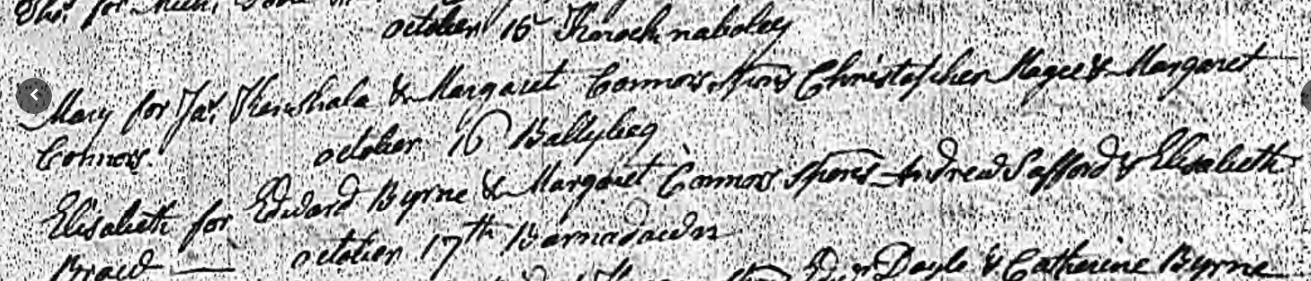 for
october 15
Mary for Jas. & Margaret Connors Spons Christopher Magee & Margaret
Connors.
october 16 Ballybeg
Elisabeth for Edward Byrne & Margaret Connors Spons Andrew Safford & Elisabeth
Braid
october 17th Barnadown
Doyle & Catherine Byrne